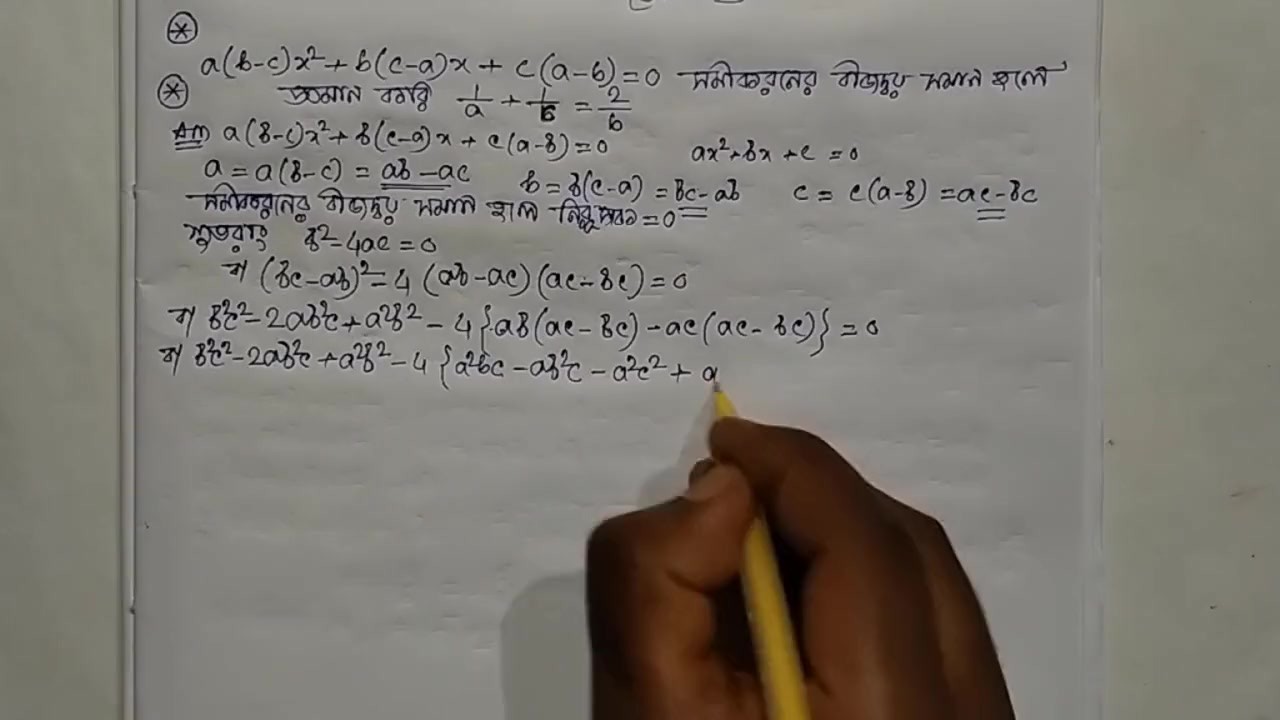 a(b-c)x²+ b(c-a)x + c(a-b)=0 সমীকরনের বীজদ্বয় সমান হলে
প্রমান করি 1/a + 1/b = 2/b
Ans a(b-c)x²+ b(c-a)x + c(a-b)=0
ax²+bx+c=0
a = a(b-c) = ab-ac
b = b(c-a) = bc-ab
c = c(a-b) = ac-bc
সমীকরনের বীজদ্বয় সমান হলে নিরূপক =0
সুতরাং b²-4ac=0
বা (bc-ab)²-4 (ab-ac)(ac-bc)=0
বা b²c²-2ab²c+a²b²-4{ab(ac-bc)-ac(ac-bc)}=0
বা b²c²-2ab²c+a²b²-4{a²bc-ab²c-a²c²+a